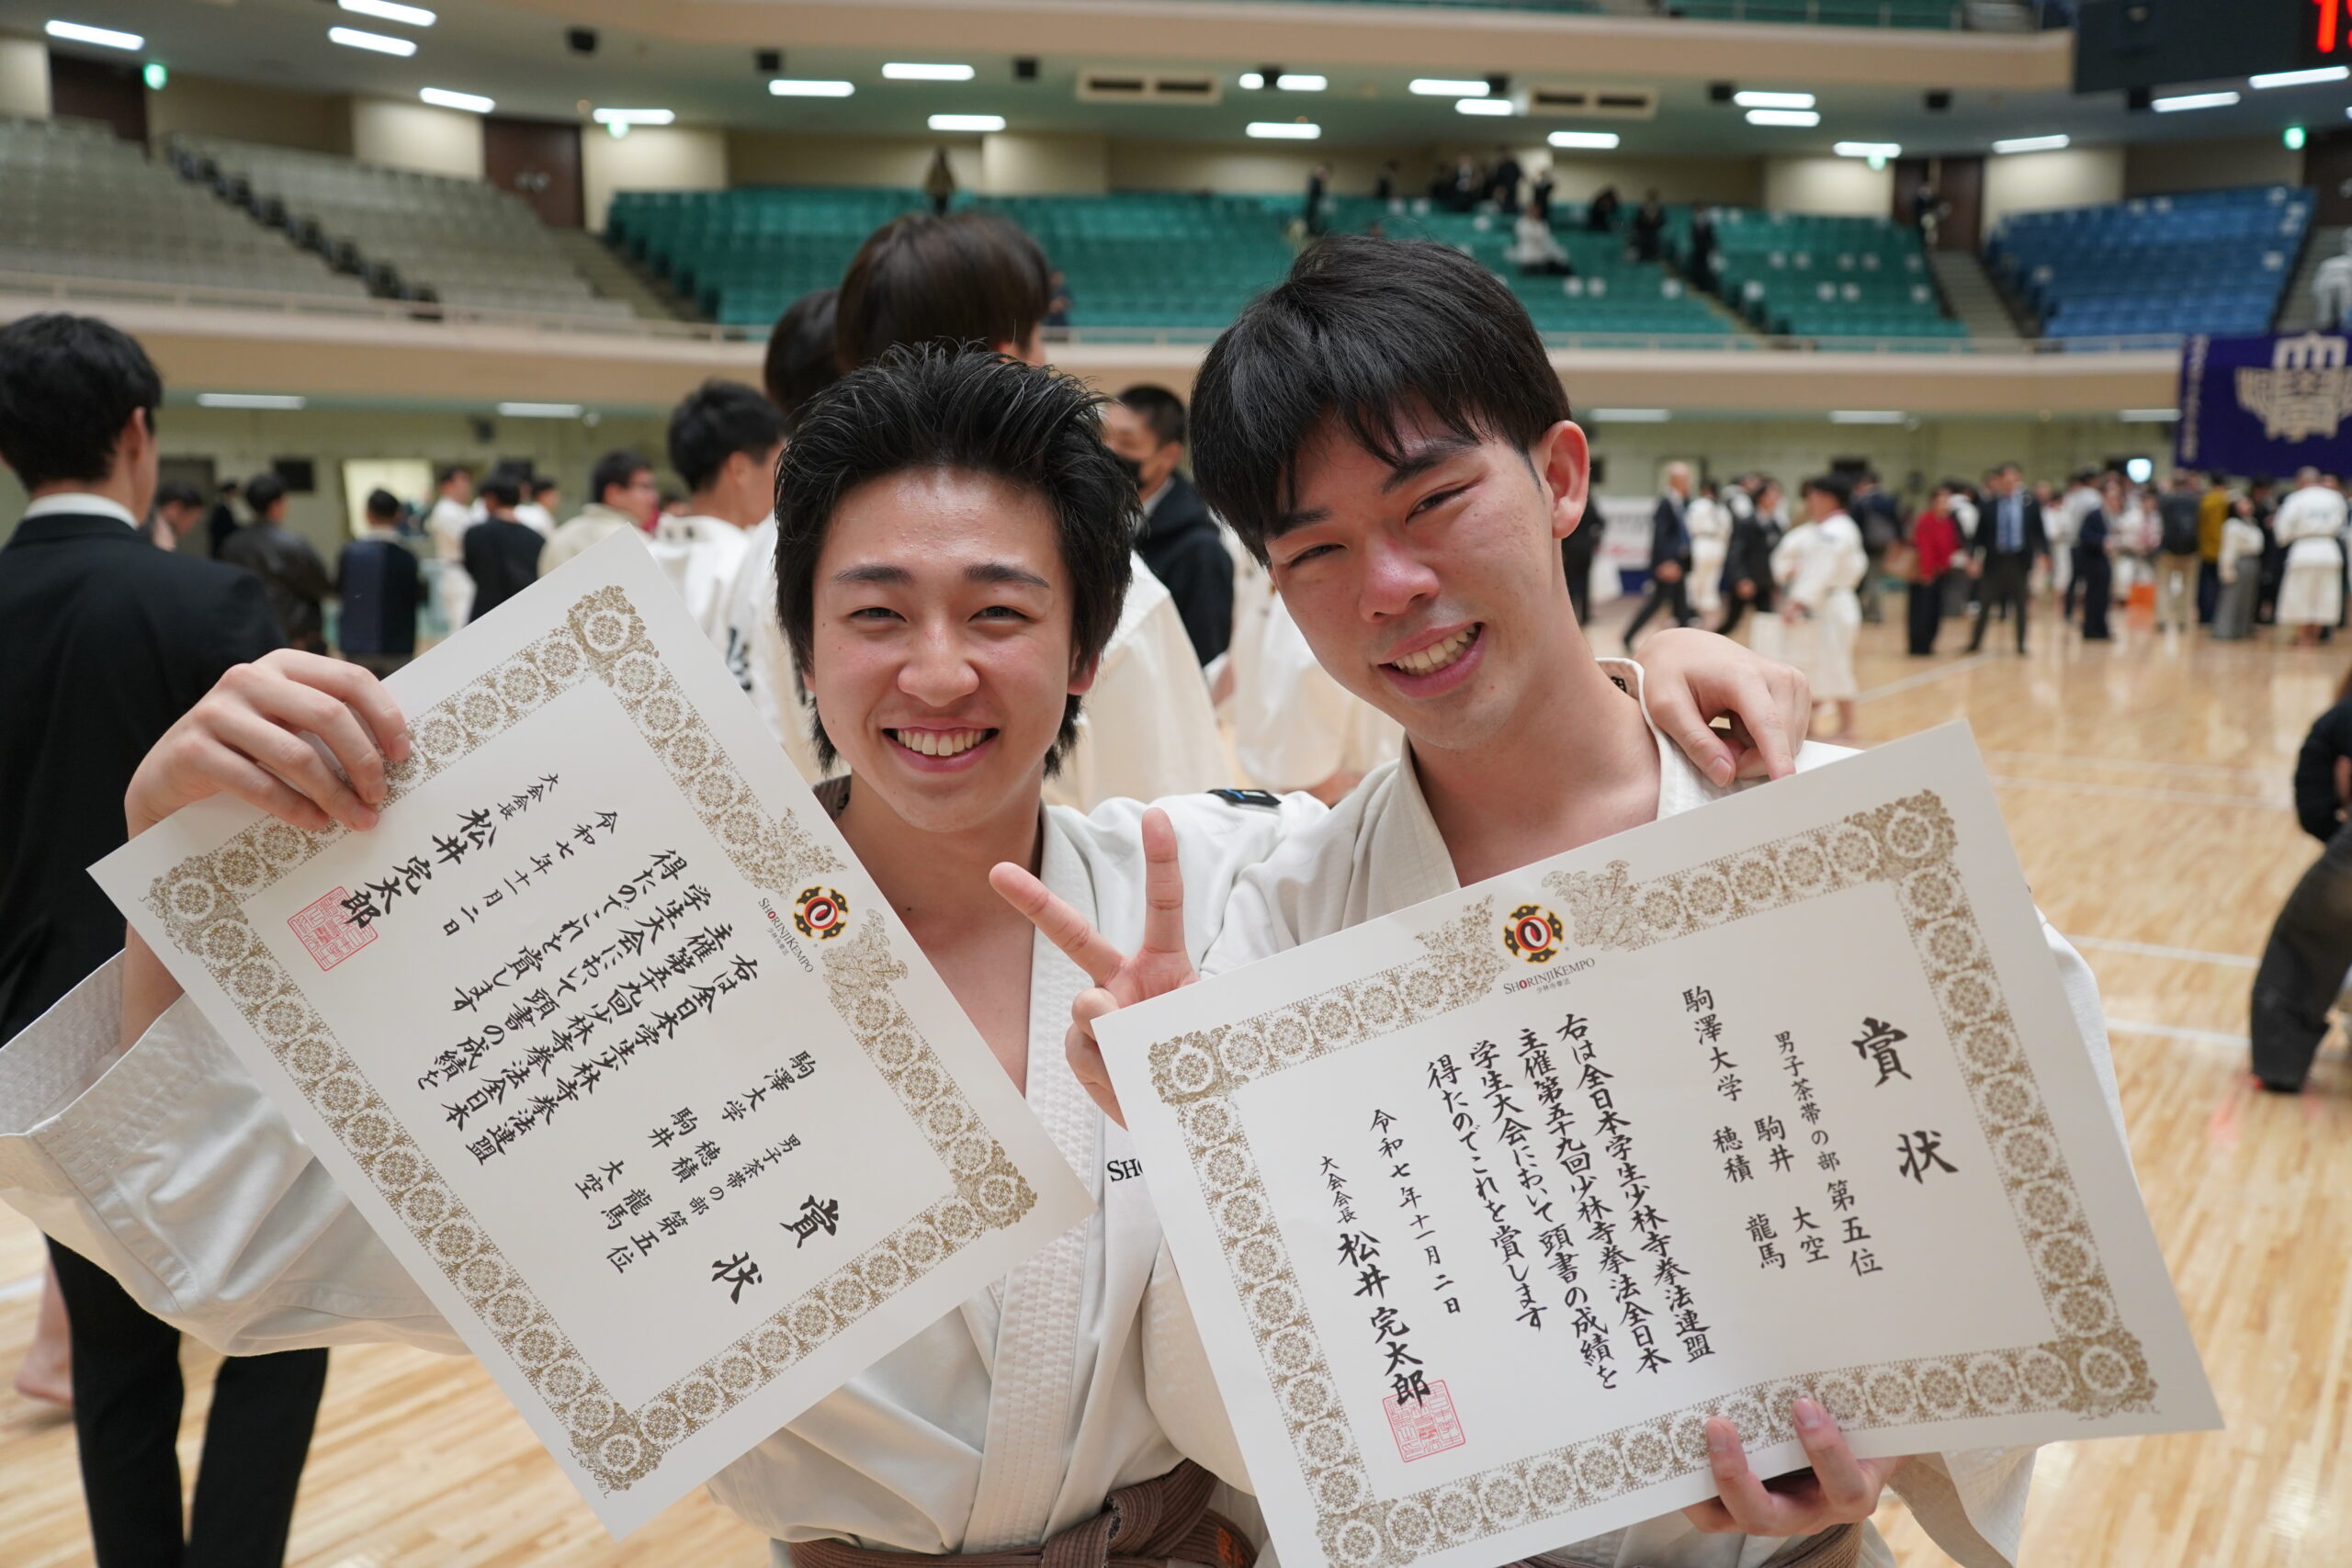 賞状
男子茶帯の部 第五位
駒澤大学 穂積 龍馬
駒井 大空
右は全日本学生少林寺拳法連盟
主催第五十九回少林寺拳法全日本
学生大会において頭書の成績を
得たのでこれを賞します
令和七年十一月二日
大会会長 松井 完太郎
SHORINJI KEMPO
少林寺拳法
賞状
男子茶帯の部 第五位
駒井 大空
駒澤大学 穂積 龍馬
右は全日本学生少林寺拳法連盟
主催第五十九回少林寺拳法全日本
学生大会において頭書の成績を
得たのでこれを賞します
令和七年十一月二日
大会会長 松井 完太郎
SHORINJI KEMPO
少林寺拳法
SH